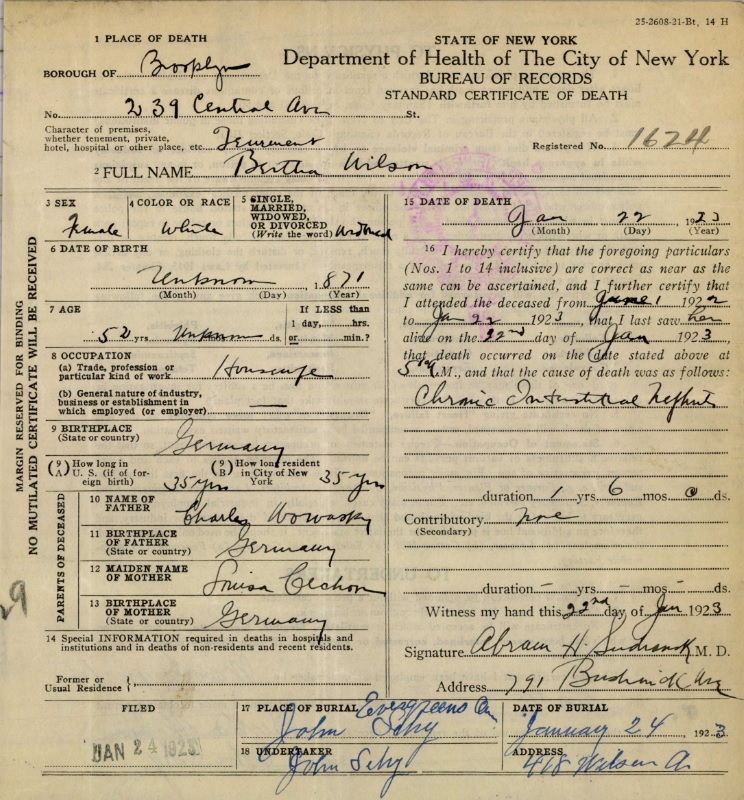 25-2608-21-Bt, 14 H
1 PLACE OF DEATH
STATE OF NEW YORK
BOROUGH OF Brooklyn
Department of Health of The City of New York
BUREAU OF RECORDS
STANDARD CERTIFICATE OF DEATH
No. 239 Central Ave St.
Character of premises,
whether tenement, private,
hotel, hospital or other place, etc. Tenement
Registered No. 1624
2 FULL NAME Bertha Wilson
MARGIN RESERVED FOR BINDING
NO MUTILATED CERTIFICATE WILL BE RECEIVED
3 SEX
Female
4 COLOR OR RACE
White
5 SINGLE,
MARRIED,
WIDOWED,
OR DIVORCED
(Write the word) Widowed
6 DATE OF BIRTH
Unknown, 1871
(Month) (Day) (Year)
7 AGE
52 yrs. Unknown ds.
If LESS than
1 day, hrs.
or min.?
8 OCCUPATION
(a) Trade, profession or
particular kind of work Housewife
(b) General nature of industry,
business or establishment in
which employed (or employer) —
9 BIRTHPLACE
(State or country) Germany
(9 A) How long in
U. S. (if of for-
eign birth) 35 yrs
(9 B) How long resident
in City of New
York 35 yrs
PARENTS OF DECEASED
10 NAME OF
FATHER Charles
11 BIRTHPLACE
OF FATHER
(State or country) Germany
12 MAIDEN NAME
OF MOTHER Louisa
13 BIRTHPLACE
OF MOTHER
(State or country) Germany
14 Special INFORMATION required in deaths in hospitals and
institutions and in deaths of non-residents and recent residents.
Former or
Usual Residence
15 DATE OF DEATH
Jan 22 1923
(Month) (Day) (Year)
16 I hereby certify that the foregoing particulars
(Nos. 1 to 14 inclusive) are correct as near as the
same can be ascertained, and I further certify that
I attended the deceased from June 1 1922
to Jan 22 1923, that I last saw her
alive on the 22nd day of Jan 1923,
that death occurred on the date stated above at
5 M., and that the cause of death was as follows:
Chronic Interstitial Nephritis
duration 1 yrs 6 mos 0 ds.
Contributory none
(Secondary)
duration – yrs – mos – ds.
Witness my hand this 22nd day of Jan 1923
Signature Abram H. M. D.
Address 791 Bushwick Ave
FILED
JAN 24 1923
17 PLACE OF BURIAL
Evergreens Cem
DATE OF BURIAL
January 24 1923
John
18 UNDERTAKER
John
ADDRESS
418 Wilson A.